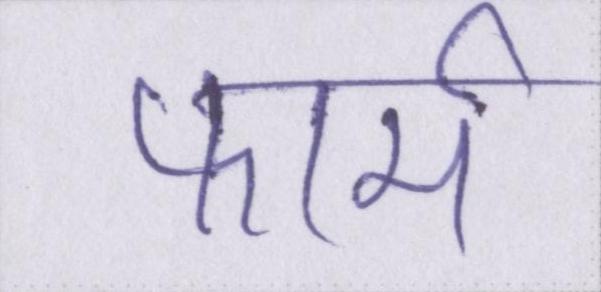 फार्म